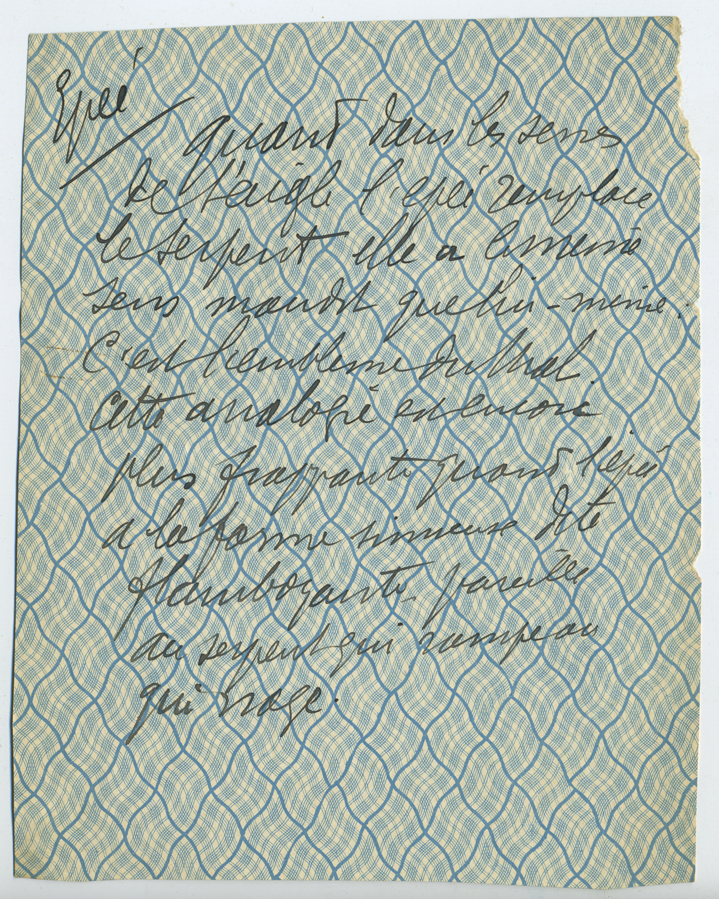 Epée
quand dans les serres
de l'aigle l'epée remplace
le serpent elle a le meme
sens maudit que lui-même :
C'est l'embleme du Mal.
Cette analogie est encore
plus frappante quand l'epée
a la forme sinueuse dite
flamboyante, pareille
au serpent qui rampe ou
qui nage.